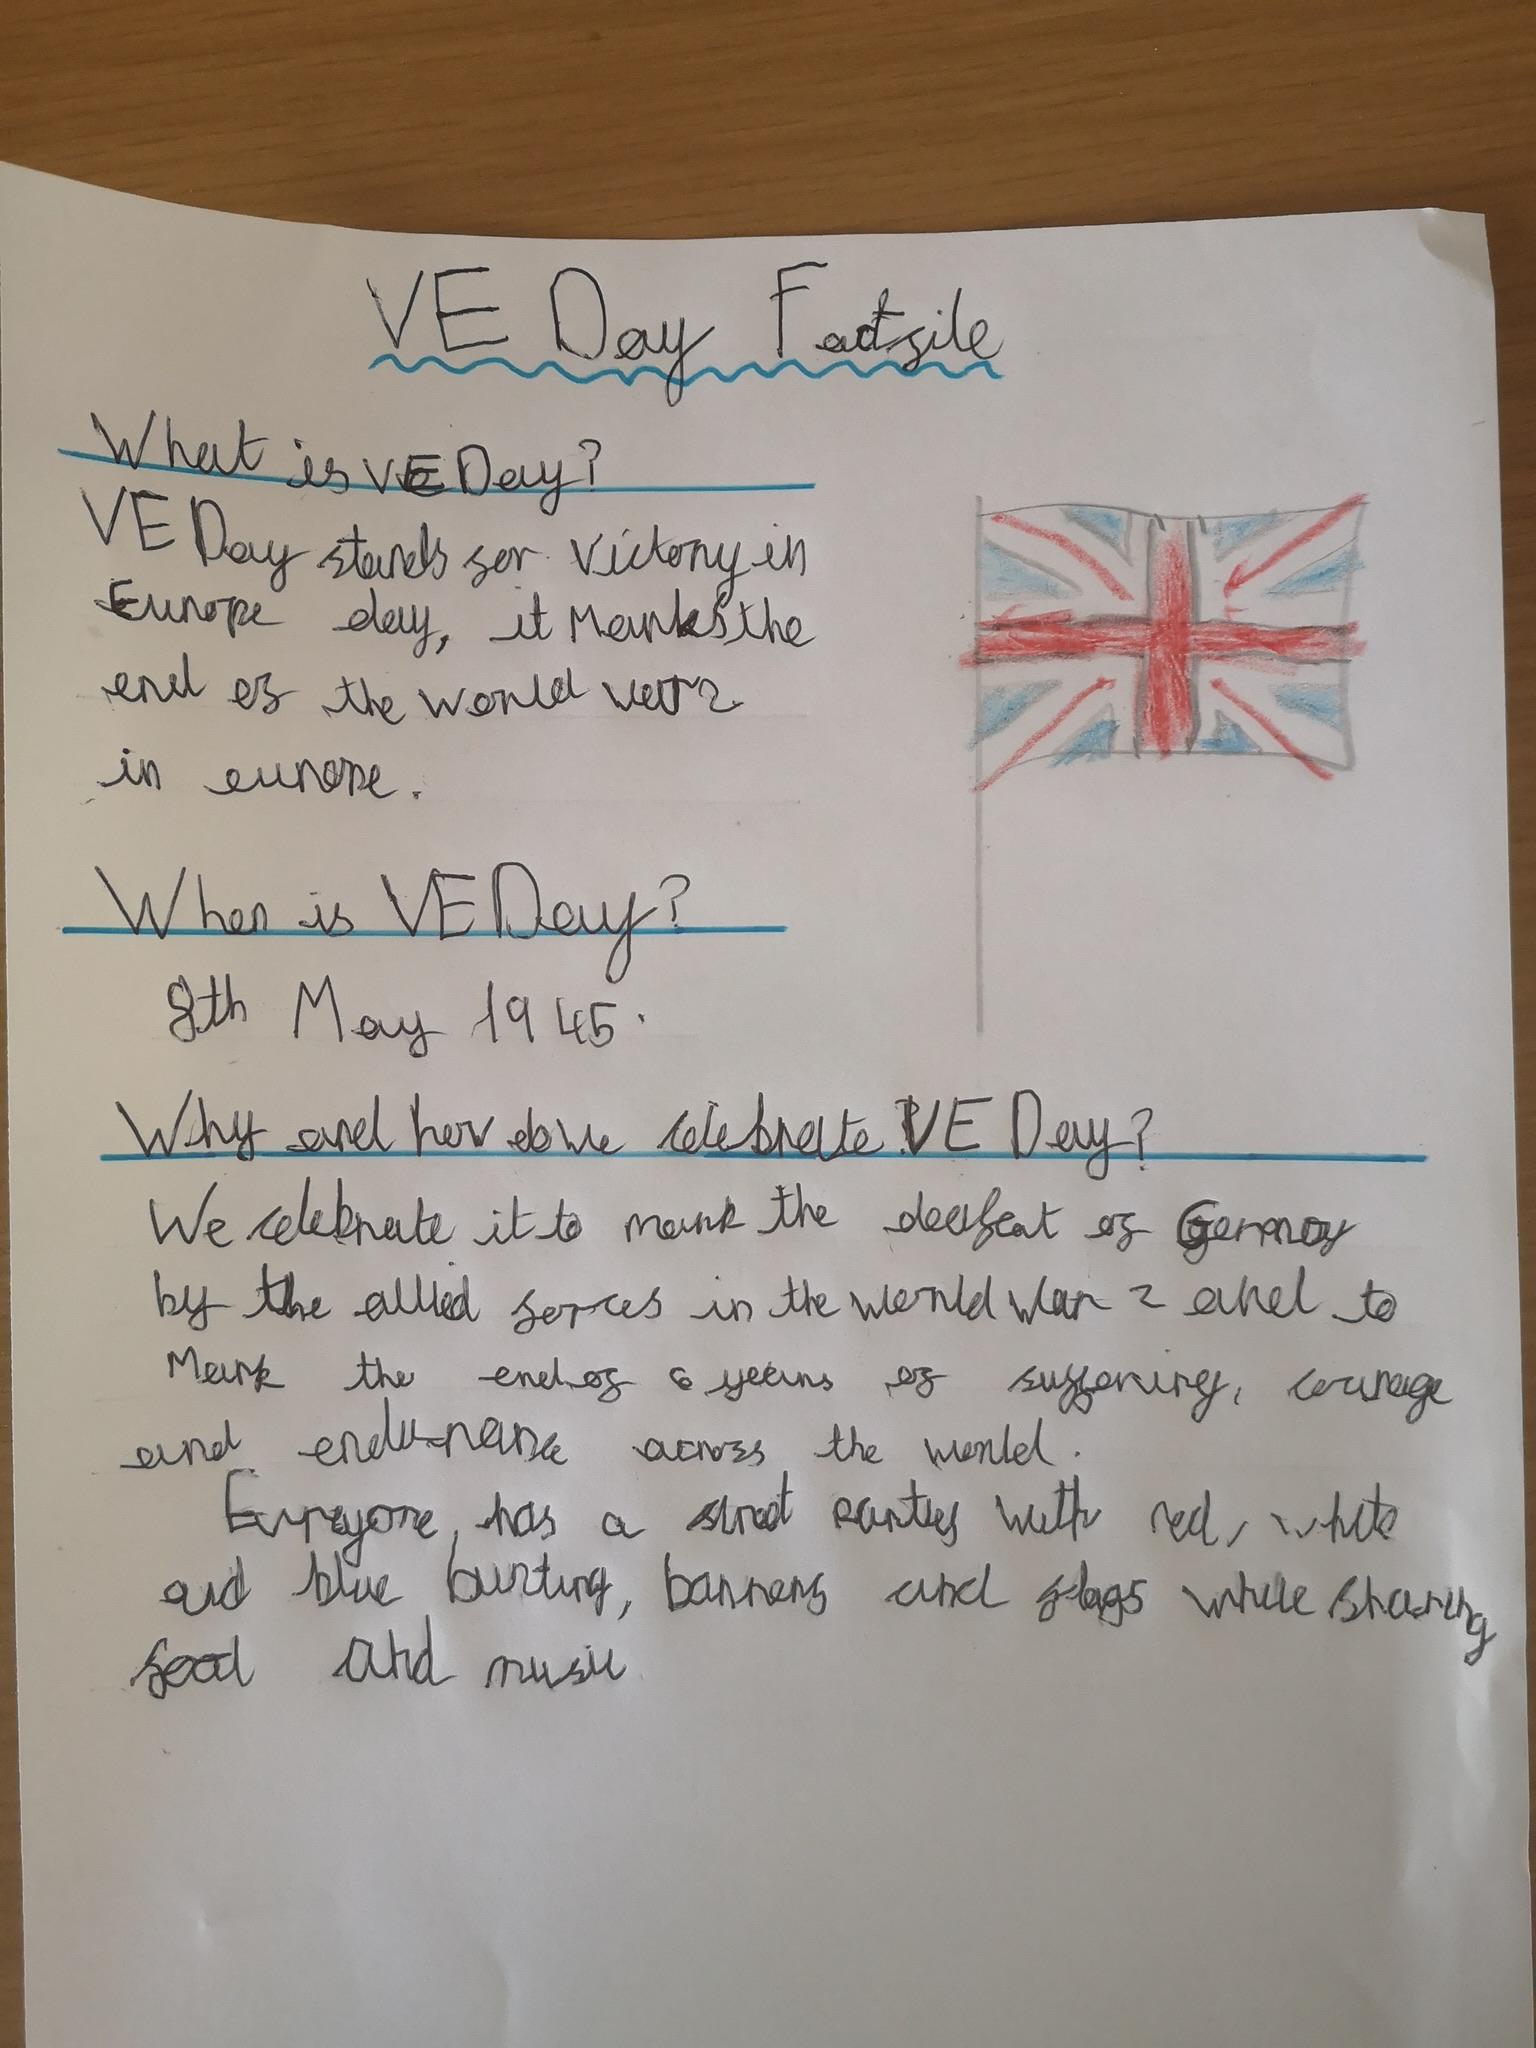 VE Day Factfile
What is VE Day?
VE Day stands for Victory in
Europe day, it Marks the
end of the world war 2
in europe.
When is VE Day?
8th May 1945.
Why and how do we celebrate VE Day?
We celebrate it to mark the deafeat of Germany
by the allied forces in the world war 2 and to
Mark the end of 6 years of suffering, courage
and endurance across the world.
Everyone has a street parties with red, white
and blue bunting, banners and flags while sharing
food and music